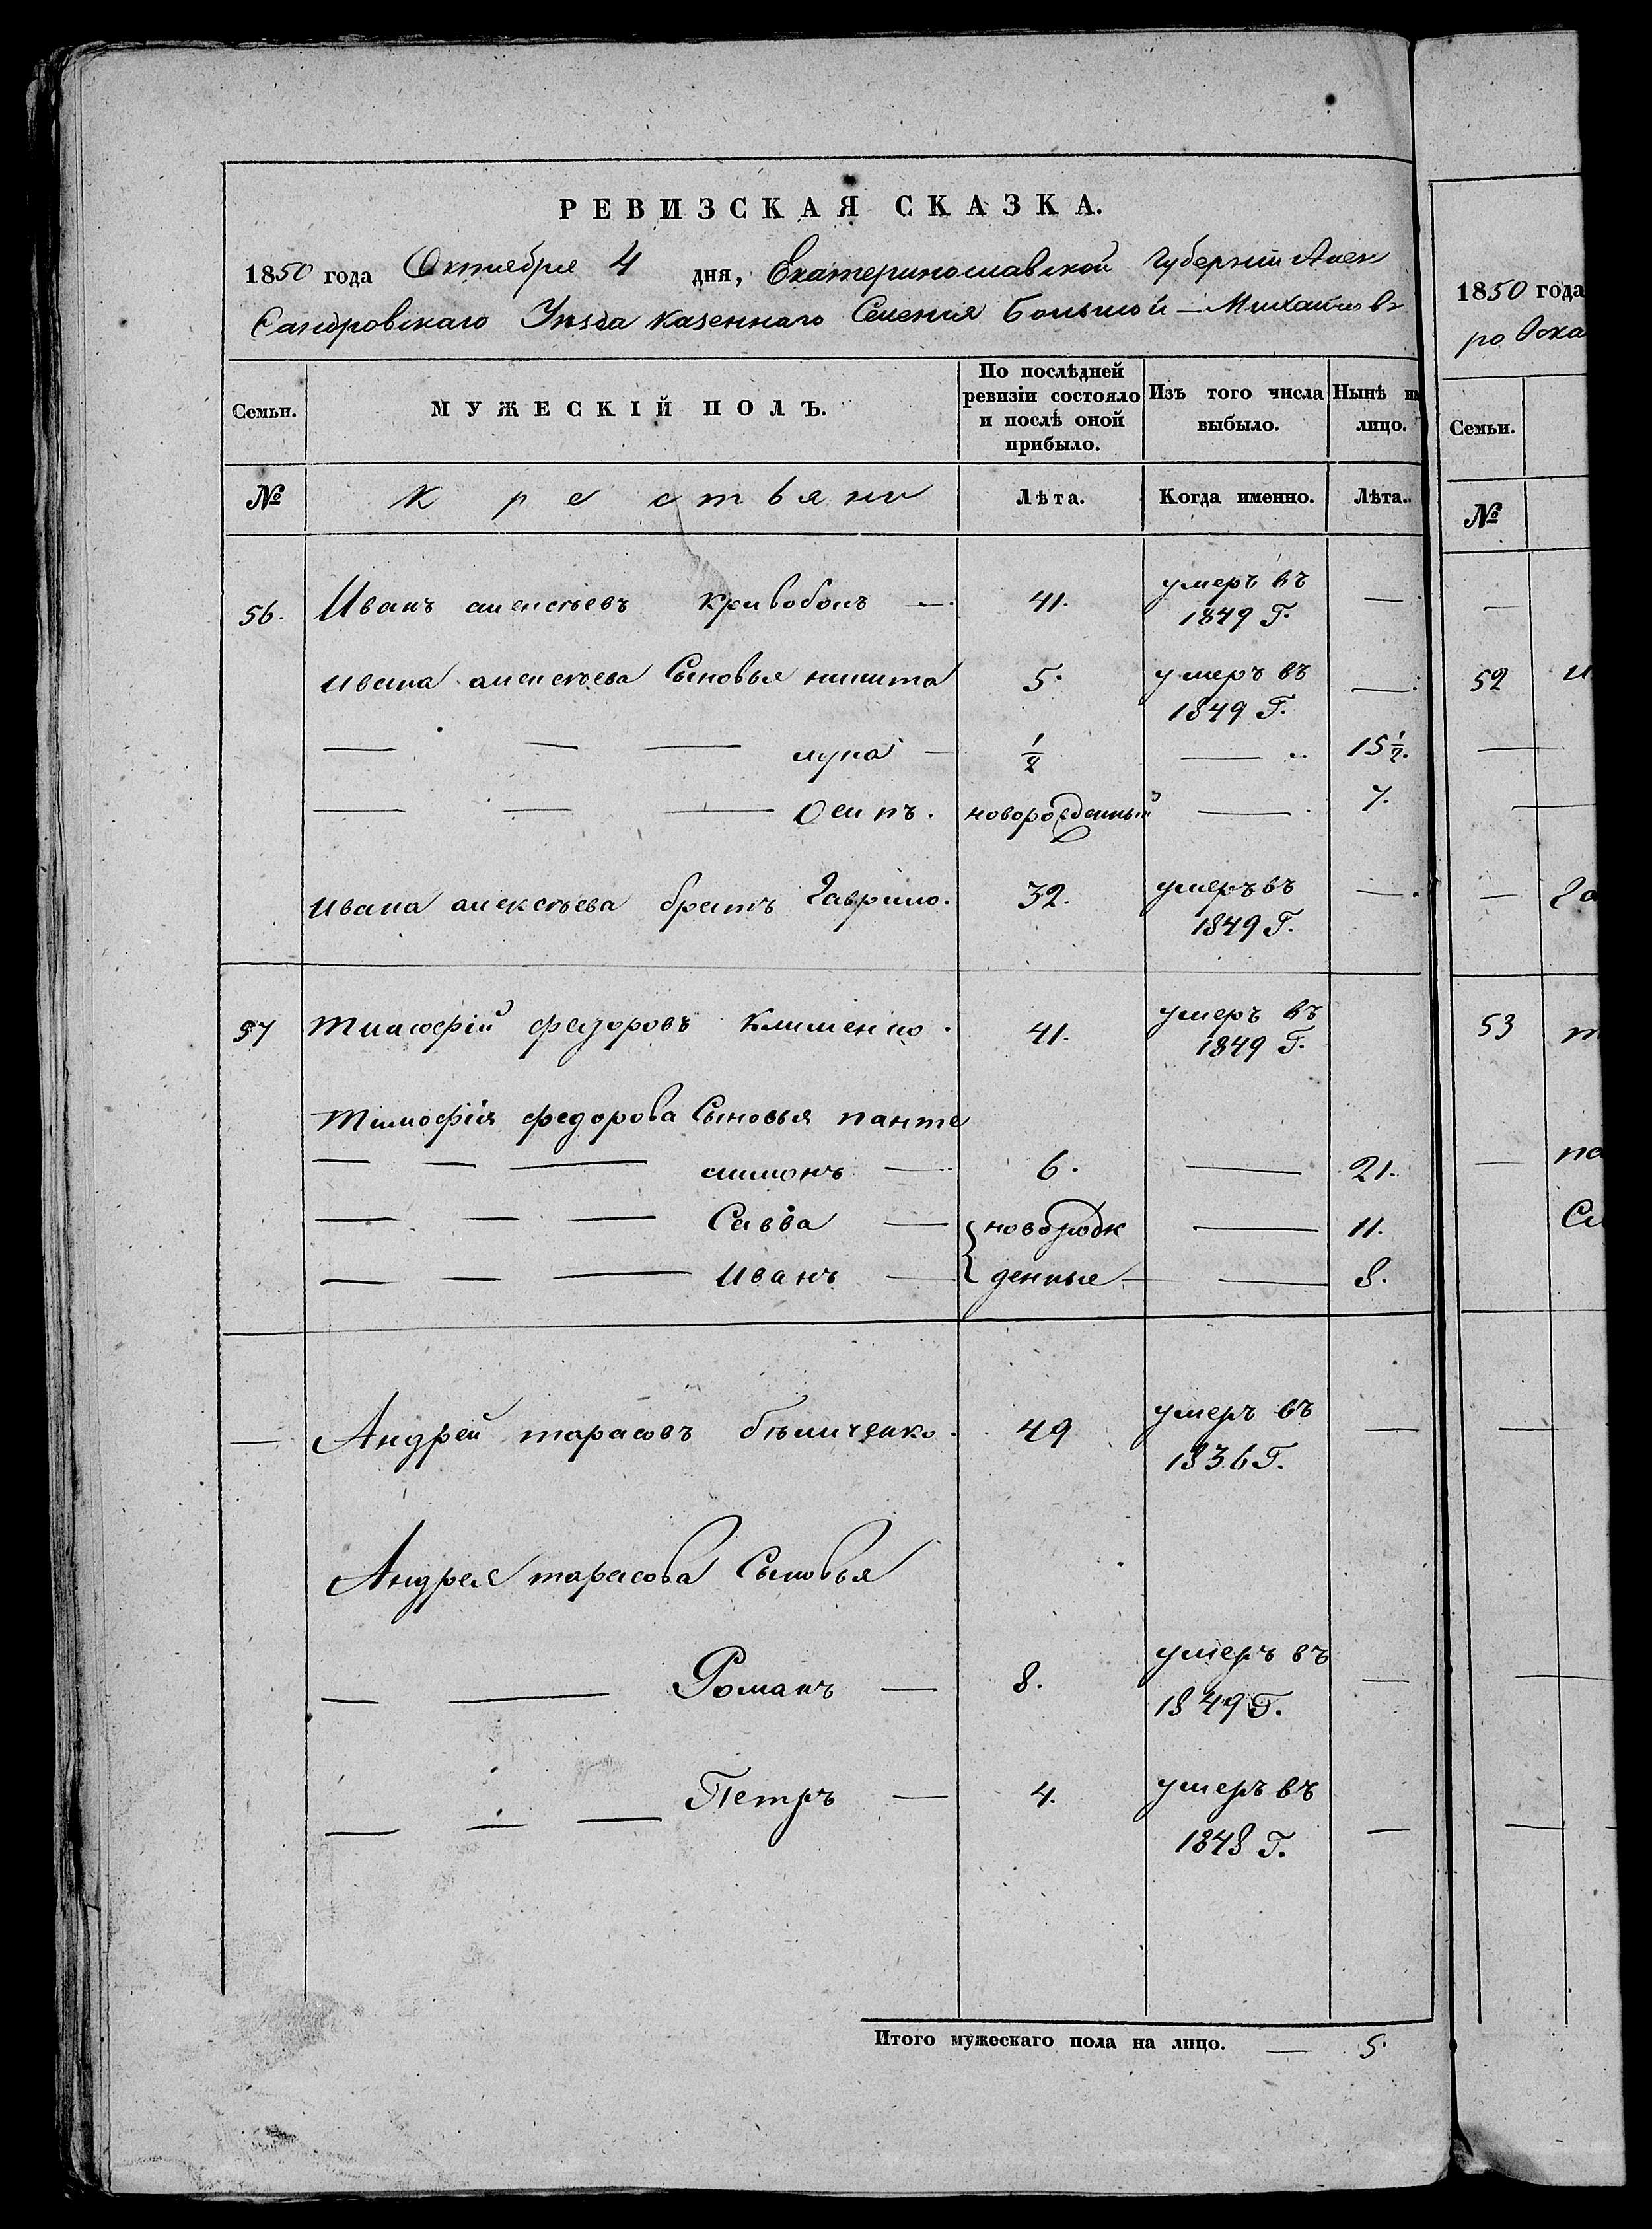 РЕВИЗСКАЯ СКАЗКА.
1850 года Октября 4 дня, Екатеринославской Губернии Алек
сандровскаго Уезда казеннаго Селения Большой – Михайловк
Семьи. МУЖЕСКІЙ ПОЛЪ. По послѣдней ревизіи состояло и послѣ оной прибыло. Изъ того числа выбыло. Нынѣ на лицо.
№ крестьяни Лѣта. Когда именно. Лѣта.
56. Иванъ алексѣевъ кривобокъ — 41. умеръ въ 1849 Г. —
ивана алексѣева Сыновья никита 5. умеръ въ 1849 Г. —
— — — лука — 1/2 — 15 1/2.
— — — Осипъ. новорожденный — 7.
ивана алексѣева братъ Гаврило. 32. умеръ въ 1849 Г. —
57 Тимофій федоровъ Клименко. 41. умеръ въ 1849 Г.
Тимофія федорова Сыновья панте
— — — лимонъ — 6. — 21.
— — — Савва — { новорож — 11.
— — — Иванъ — { денные — — 8.
— Андрей тарасовъ бѣличенко. 49 умеръ въ 1836 Г. —
Андрея тарасова Сыновья
— — Романъ — 8. умеръ въ 1849 Г. —
— — — Петръ — 4. умеръ въ 1848 Г. —
Итого мужескаго пола на лицо. — 5.
1850 года
ро вска
Семьи.
№
—
52 и
—
—
— Га
53 т
— па
Са
—
—
—